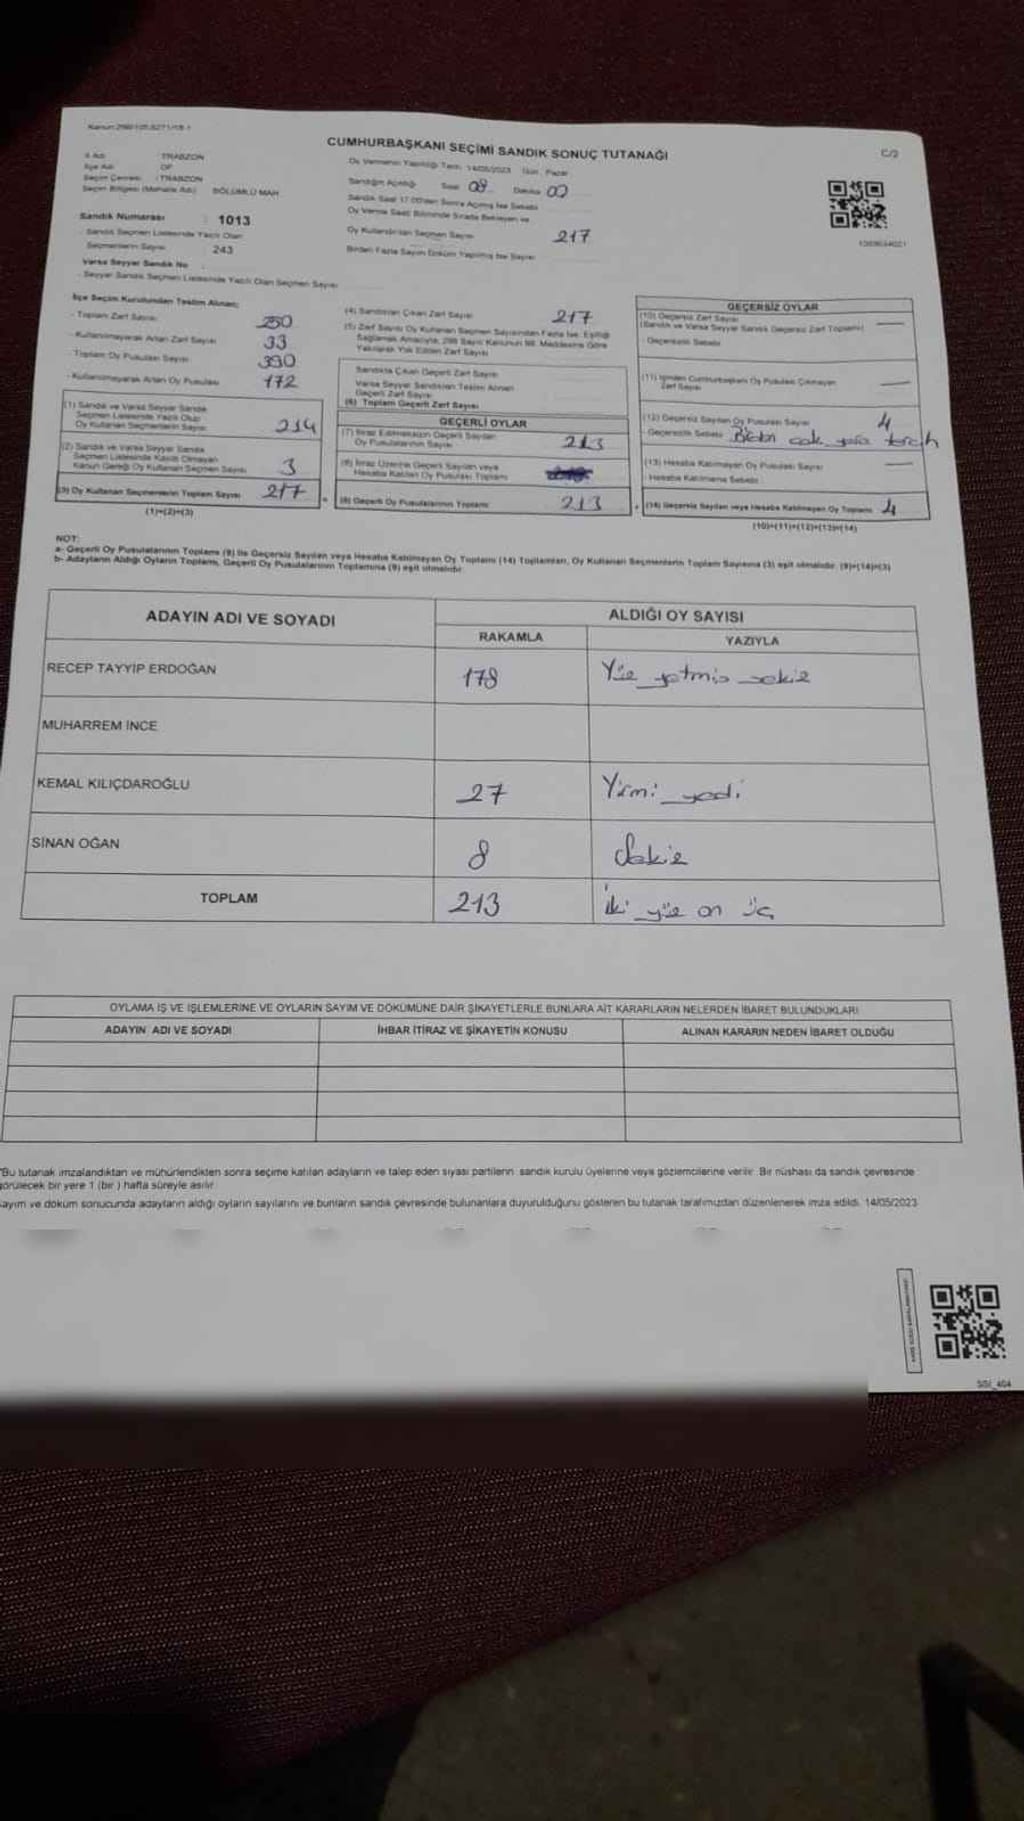 CUMHURBAŞKANI SEÇİMİ SANDIK SONUÇ TUTANAĞI
C/2
İl Adı : TRABZON
İlçe Adı : OF
Seçim Çevresi : TRABZON
Seçim Bölgesi (Mahalle Adı) : BÖLÜMLÜ MAH.
Oy Vermenin Yapıldığı Tarih: 14/05/2023 Gün: Pazar
Sandığın Açıldığı Saat 08 Dakika 00
Sandık Saat 17.00'den Sonra Açılmış İse Sebebi
Oy Verme Saati Bitiminde Sırada Bekleyen ve
Oy Kullandırılan Seçmen Sayısı 217
Birden Fazla Sayım Döküm Yapılmış İse Sayısı
Sandık Numarası : 1013
Sandık Seçmen Listesinde Yazılı Olan
Seçmenlerin Sayısı : 243
Varsa Seyyar Sandık No :
Seyyar Sandık Seçmen Listesinde Yazılı Olan Seçmen Sayısı
İlçe Seçim Kurulundan Teslim Alınan:
- Toplam Zarf Sayısı 250
- Kullanılmayarak Artan Zarf Sayısı 33
- Toplam Oy Pusulası Sayısı 390
- Kullanılmayarak Artan Oy Pusulası 172
(1) Sandık ve Varsa Seyyar Sandık
Seçmen Listesinde Yazılı Olup
Oy Kullanan Seçmenlerin Sayısı 214
(2) Sandık ve Varsa Seyyar Sandık
Seçmen Listesinde Kayıtlı Olmayan
Kanun Gereği Oy Kullanan Seçmen Sayısı 3
(3) Oy Kullanan Seçmenlerin Toplam Sayısı 217
(1)+(2)=(3)
(4) Sandıktan Çıkan Zarf Sayısı 217
(5) Zarf Sayısı Oy Kullanan Seçmen Sayısından Fazla İse, Eşitliği
Sağlamak Amacıyla, 298 Sayılı Kanunun 98. Maddesine Göre
Yakılarak Yok Edilen Zarf Sayısı
Sandıkta Çıkan Geçerli Zarf Sayısı
Varsa Seyyar Sandıktan Teslim Alınan
Geçerli Zarf Sayısı
(6) Toplam Geçerli Zarf Sayısı
GEÇERLİ OYLAR
(7) İtiraz Edilmeksizin Geçerli Sayılan
Oy Pusulalarının Sayısı 213
(8) İtiraz Üzerine Geçerli Sayılan veya
Hesaba Katılan Oy Pusulası Toplamı
(9) Geçerli Oy Pusulalarının Toplamı 213
GEÇERSİZ OYLAR
(10) Geçersiz Zarf Sayısı
(Sandık ve Varsa Seyyar Sandık Geçersiz Zarf Toplamı)
Geçersizlik Sebebi
(11) İçinden Cumhurbaşkanı Oy Pusulası Çıkmayan
Zarf Sayısı
(12) Geçersiz Sayılan Oy Pusulası Sayısı 4
Geçersizlik Sebebi Birden çok tercih
(13) Hesaba Katılmayan Oy Pusulası Sayısı
Hesaba Katılmama Sebebi
(14) Geçersiz Sayılan veya Hesaba Katılmayan Oy Toplamı 4
(10)+(11)+(12)+(13)=(14)
NOT:
a- Geçerli Oy Pusulalarının Toplamı (9) ile Geçersiz Sayılan veya Hesaba Katılmayan Oy Toplamı (14) Toplamları, Oy Kullanan Seçmenlerin Toplam Sayısına (3) eşit olmalıdır. (9)+(14)=(3)
b- Adayların Aldığı Oyların Toplamı, Geçerli Oy Pusulalarının Toplamına (9) eşit olmalıdır.
ADAYIN ADI VE SOYADI
ALDIĞI OY SAYISI
RAKAMLA YAZIYLA
RECEP TAYYİP ERDOĞAN 178 Yüz yetmiş sekiz
MUHARREM İNCE
KEMAL KILIÇDAROĞLU 27 Yirmi yedi
SİNAN OĞAN 8 Sekiz
TOPLAM 213 İki yüz on üç
OYLAMA İŞ VE İŞLEMLERİNE VE OYLARIN SAYIM VE DÖKÜMÜNE DAİR ŞİKAYETLERLE BUNLARA AİT KARARLARIN NELERDEN İBARET BULUNDUKLARI
ADAYIN ADI VE SOYADI İHBAR İTİRAZ VE ŞİKAYETİN KONUSU ALINAN KARARIN NEDEN İBARET OLDUĞU
*Bu tutanak imzalandıktan ve mühürlendikten sonra seçime katılan adayların ve talep eden siyasi partilerin sandık kurulu üyelerine veya gözlemcilerine verilir. Bir nüshası da sandık çevresinde
görülecek bir yere 1 (bir) hafta süreyle asılır.
ayım ve döküm sonucunda adayların aldığı oyların sayılarını ve bunların sandık çevresinde bulunanlara duyurulduğunu gösteren bu tutanak tarafımızdan düzenlenerek imza edildi. 14/05/2023